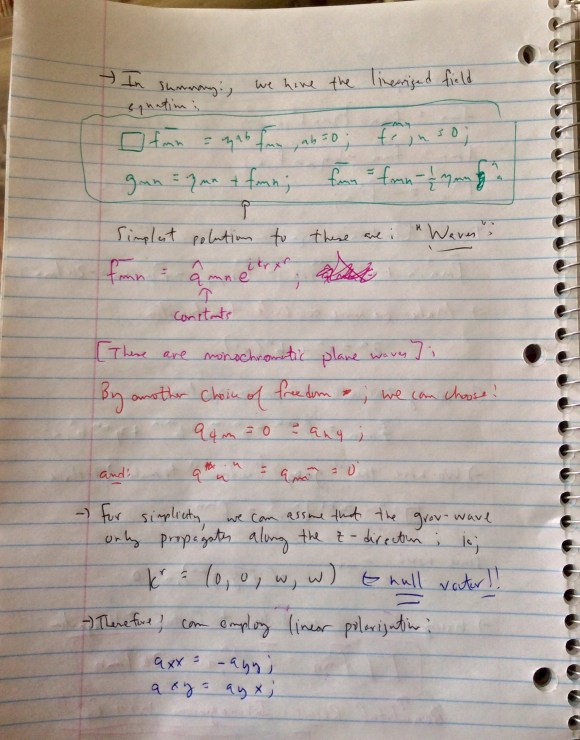 → In summary:, we have the linearised field
equation:
□ f̄mn = ηab f̄mn,ab = 0; f̄r mn,n = 0;
gmn = ηmn + fmn; f̄mn = fmn - 1/2 ηmn f
↑
Simplest solution to these are: "Waves":
f̄mn = âmn e^{i kr x^r};
↑
constants
[These are monochromatic plane waves];
By another choice of freedom; we can choose:
a4m = 0 = an4;
and: a^n_n = amn = 0
→ For simplicity, we can assume that the grav-wave
only propagates along the z-direction; ie;
k^r = (0, 0, w, w) ← null vector!!
→ Therefore; can employ linear polarization:
axx = -ayy;
axy = ayx;